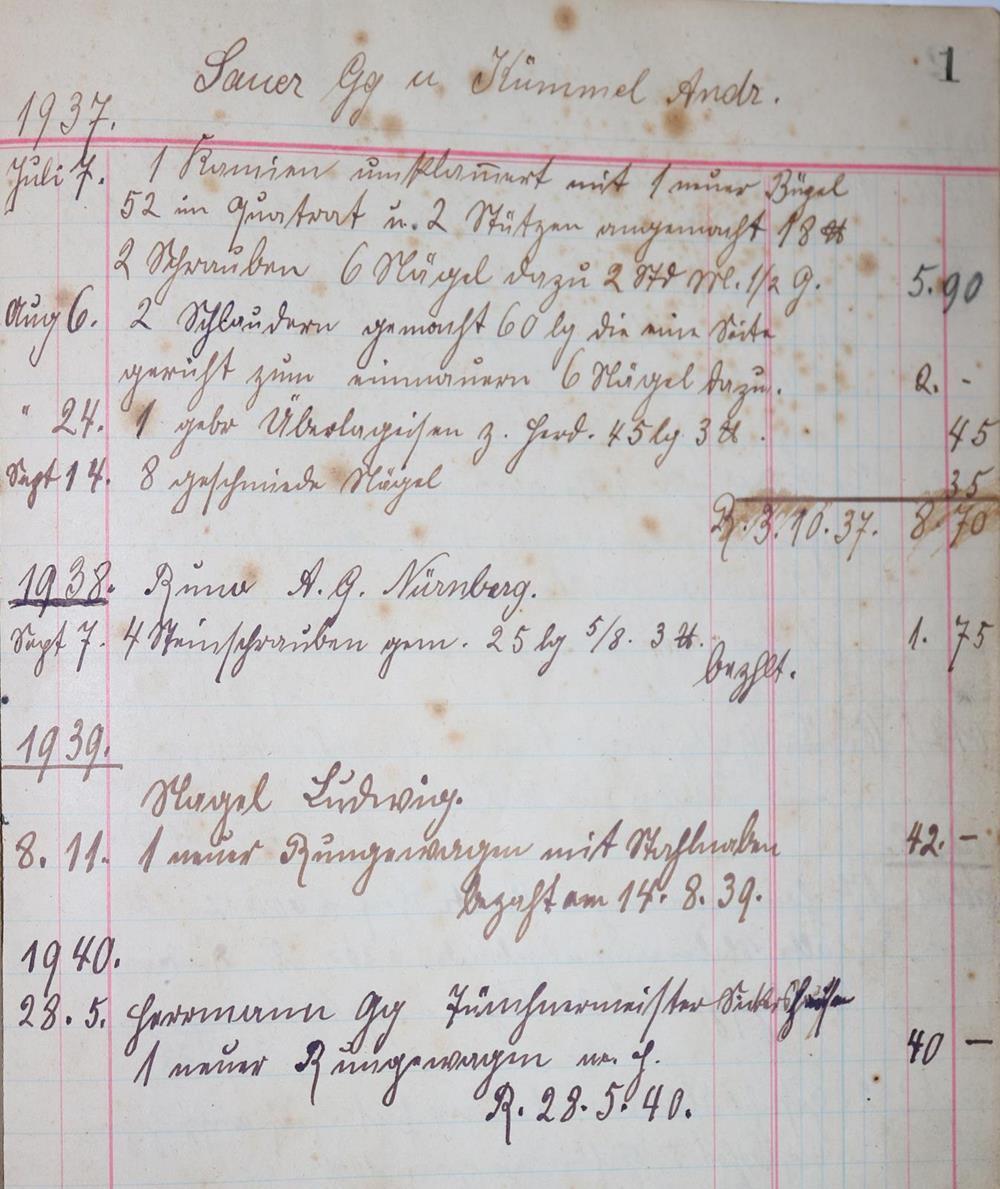 1
Sauer Gg u Kümmel Andr.
1937.
Juli 7. 1 Kamien umklam̅ert mit 1 neuer Bügel
52 im Quatrat u. 2 Stützen angemacht 18 ℔
2 Schrauben 6 Nägel dazu 2 Std M. 1/2 G. 5.90
Aug 6. 2 Schlaudern gemacht 60 lg die eine Seite
gericht zum einmauern 6 Nägel dazu. 2. -
" 24. 1 gebr Überlageisen z. Herd. 45 lg 3 ℔. 45
Sept 14. 8 geschmiede Nägel 35
R. 3.10.37. 8.70
1938. Runa A. G. Nürnberg.
Sept 7. 4 Steinschrauben gem. 25 lg 5/8. 3 ℔. 1. 75
bezhlt.
1939.
Nagel Ludwig.
8. 11. 1 neuer Rungewagen mit Stahlnaben 42. -
bezaht am 14. 8. 39.
1940.
28. 5. Herrmann Gg Tünchnermeister
1 neuer Rungewagen m. H. 40 -
R. 28. 5. 40.